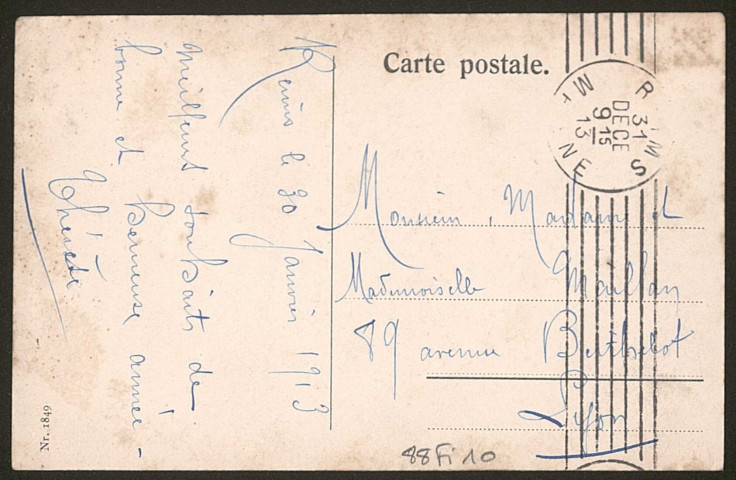 Carte postale.
REIMS
MARNE
31
DECE
9 15
13
Reims le 30 Janvier 1913
Meilleurs souhaits de
bonne et heureuse année -
Thérèse
Monsieur, Madame et
Mademoiselle Maillan
89 avenue Berthelot
Lyon
Nr. 1849
88Fi10